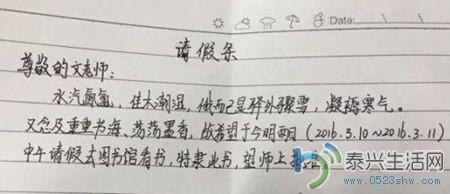 Date:
请假条
尊敬的文老师：
水汽氤氲，佳木潮湿，俄而已是驿外骤雪，凝稀寒气。
又念及重重书海，荡荡墨香，故希望于今明两日（2016.3.10～2016.3.11）
中午请假去图书馆看书，特隶此书，望师上
泰兴生活网
www.0523shw.com